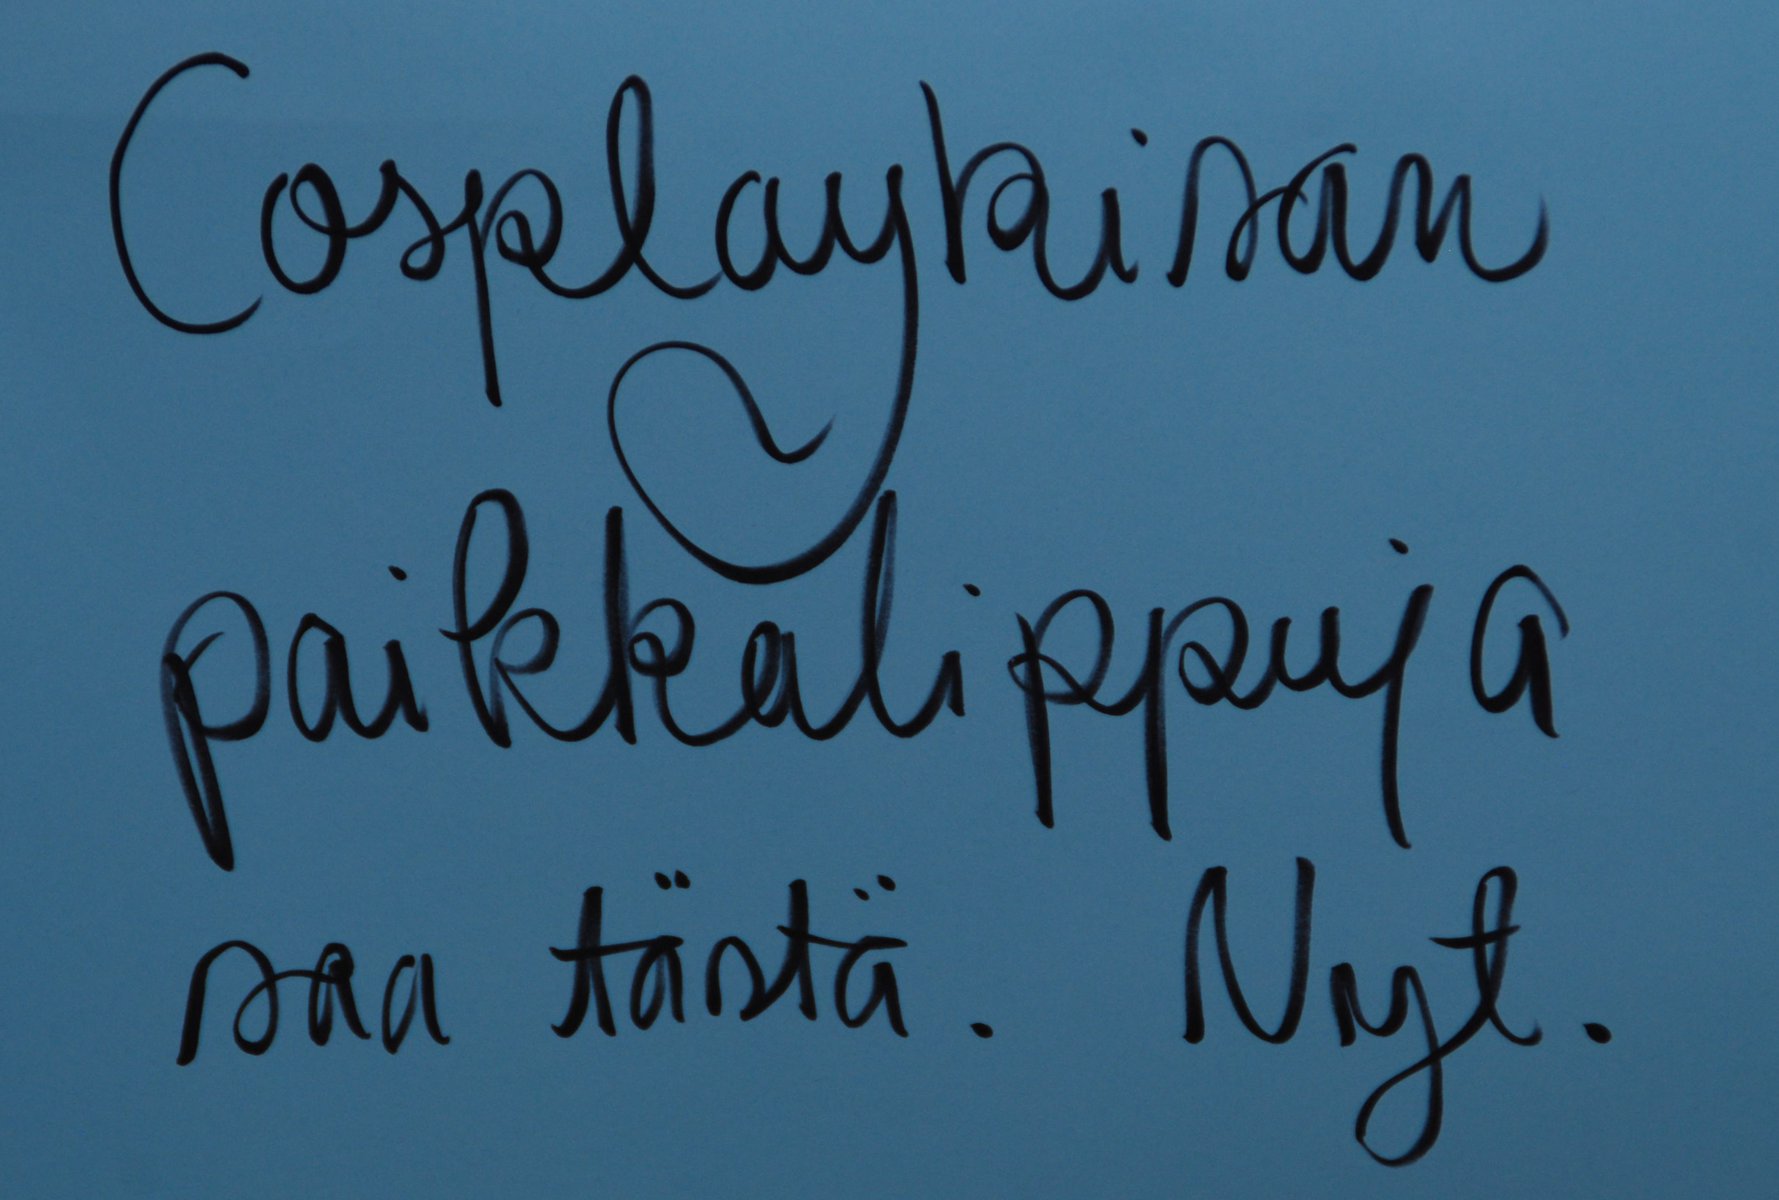 Cosplaykisan
paikkalippuja
saa tästä. Nyt.